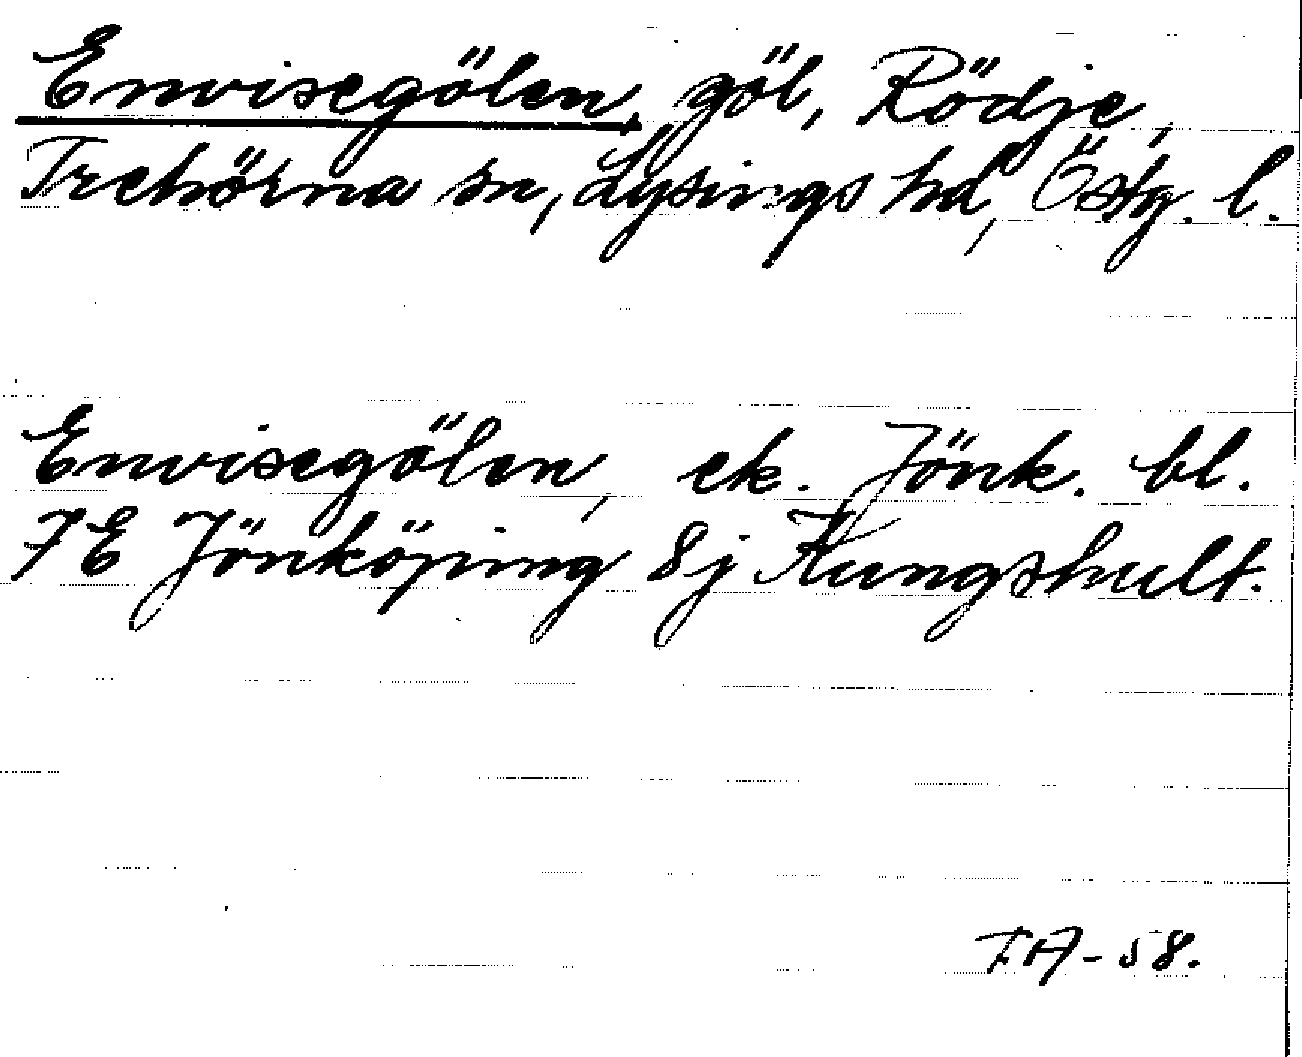 Envisegölen, göl, Rödje,
Trehörna sn, Lysings hd, Östg. l.
Envisegölen, ek. Jönk. bl.
7E Jönköping 8j Kungshult.
T.A-58.